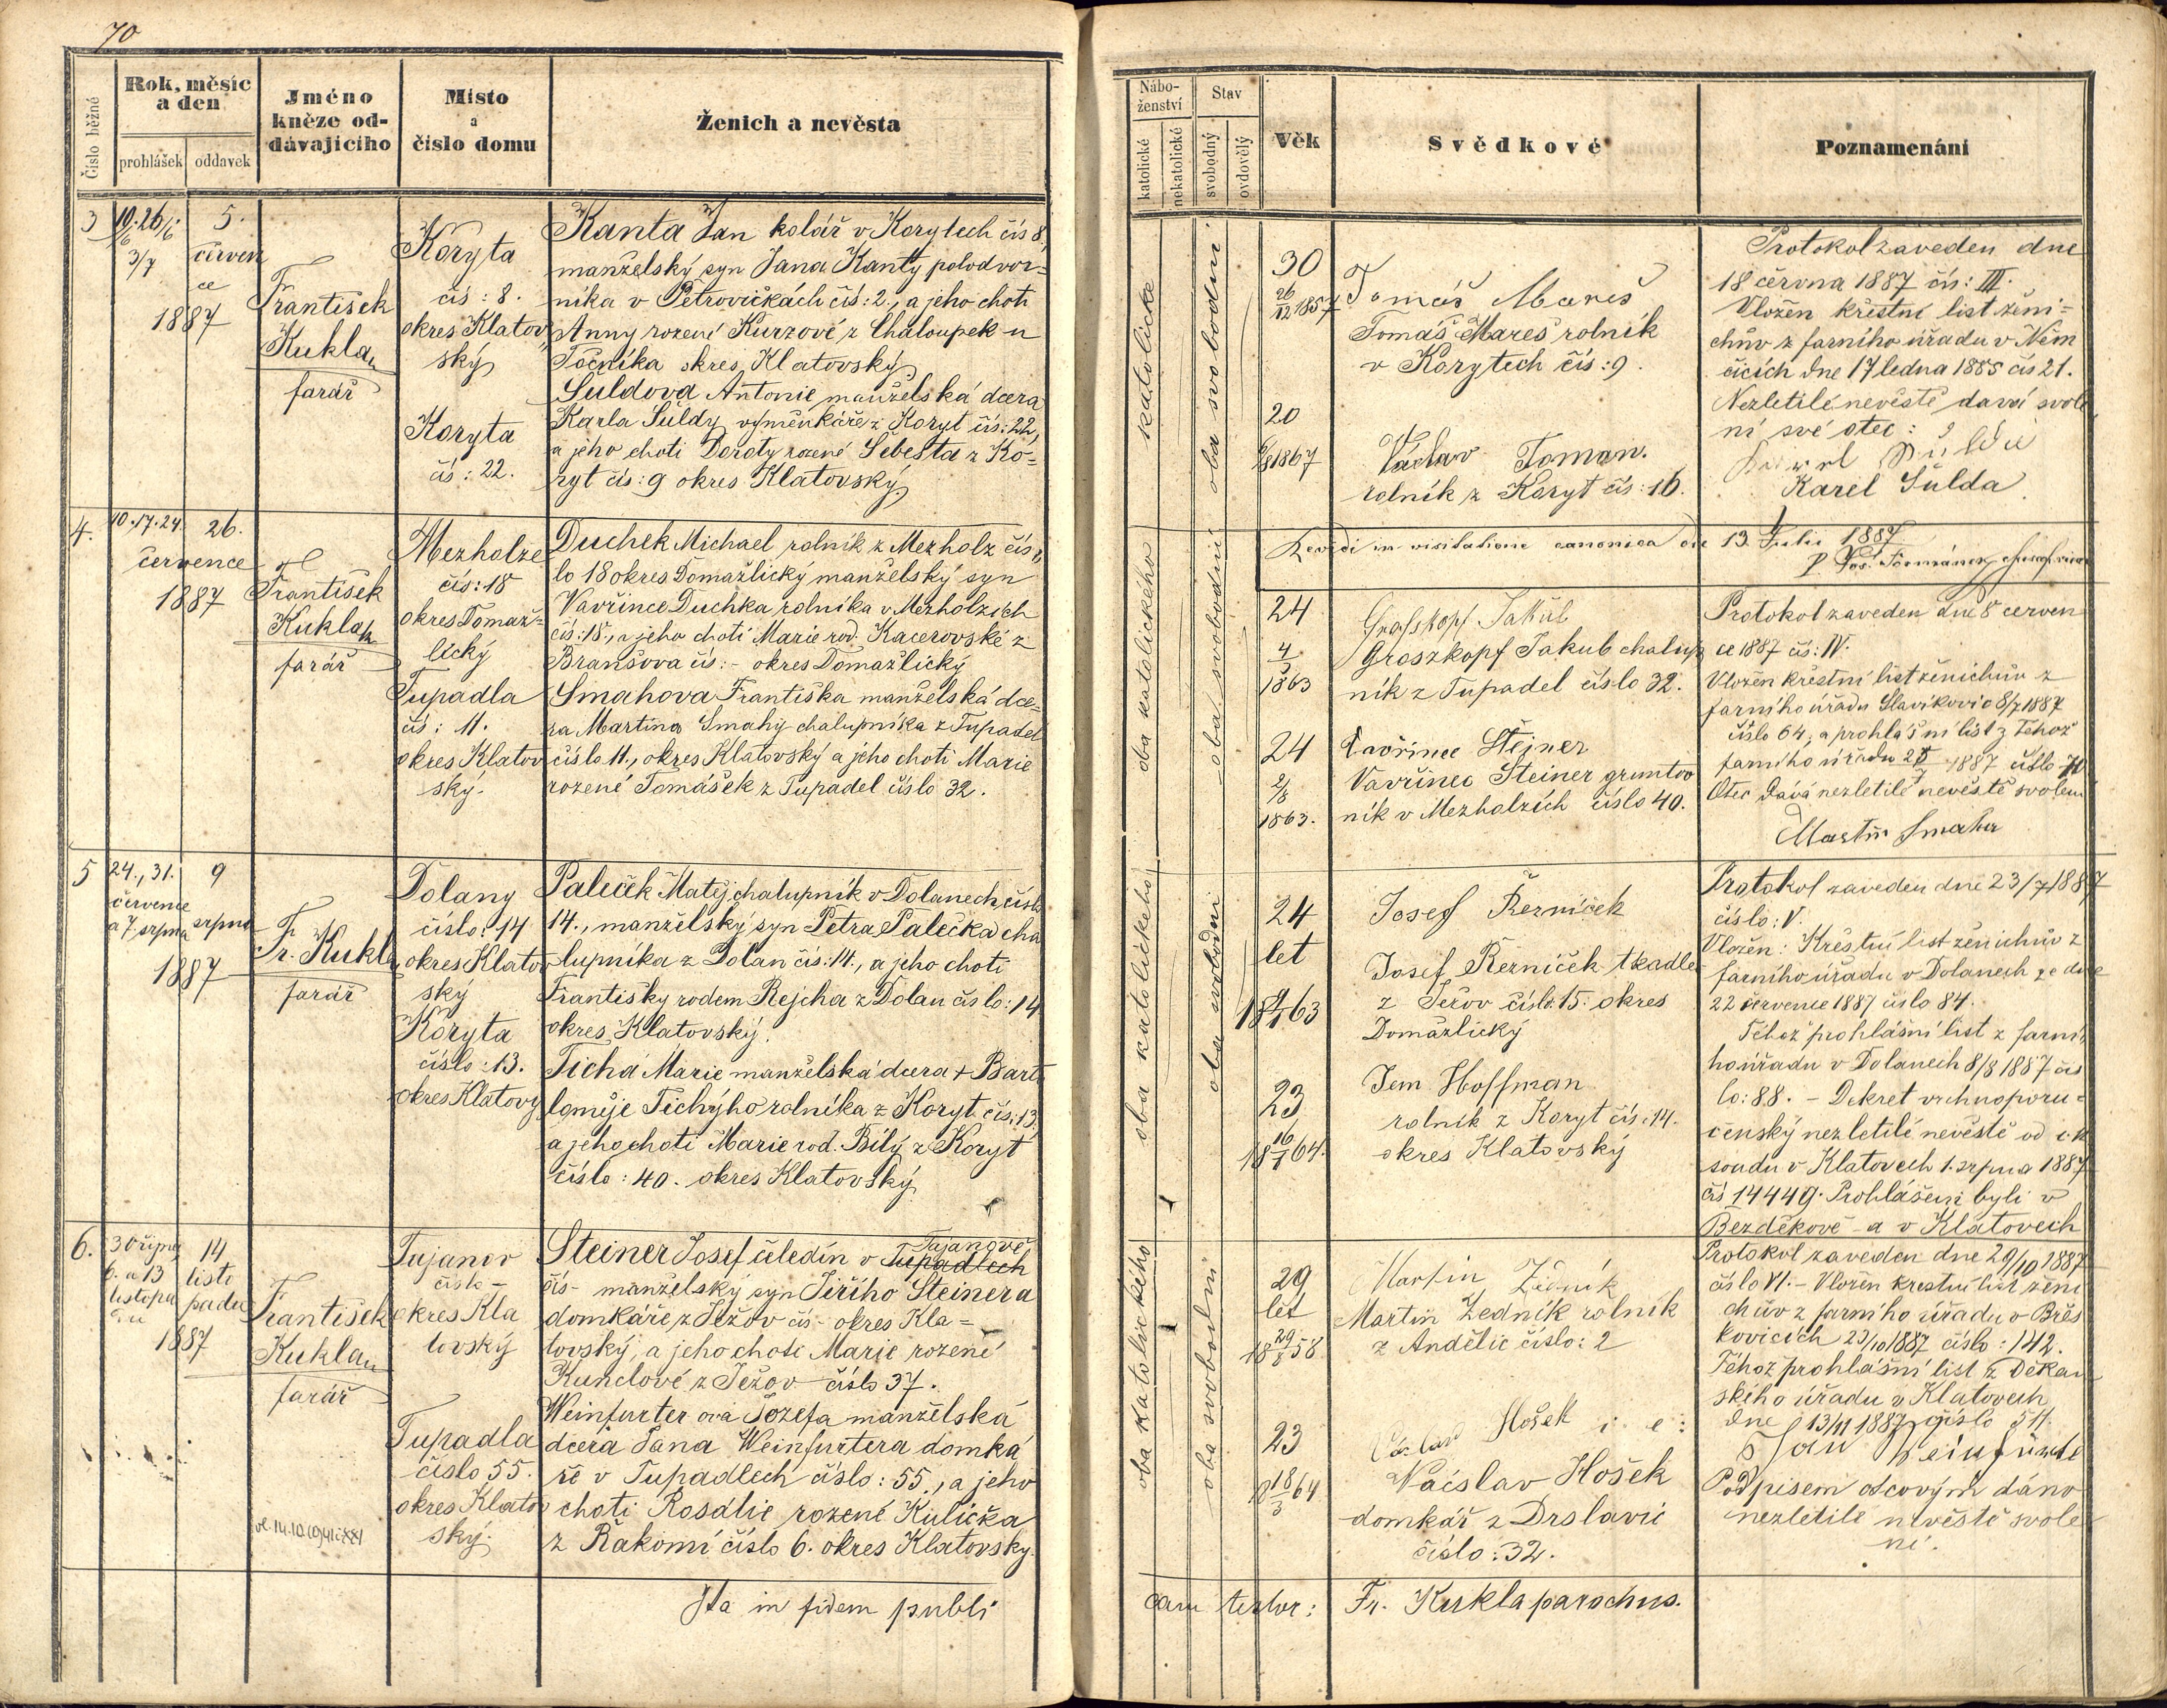 70
Číslo běžné
Rok, měsíc
a den
prohlášek
oddavek
Jméno
kněze od-
dávajícího
Místo
a
číslo domu
Ženich a nevěsta
3
10. 26/6.
3/7
5.
červen
ce
1887
František
Kukla
farář
Koryta
čís: 8.
okres Klatov
ský
Koryta
čís: 22.
Kanta Jan kolář v Korytech čís 8,
manželský syn Jana Kanty polodvor=
níka v Petrovičkách čís: 2., a jeho choti
Anny rozené Kurzové z Chaloupek u
Točníka okres Klatovský
Šuldova Antonie manželská dcera
Karla Šuldy výměnkáře z Koryt čís: 22,
a jeho choti Doroty rozené Šebesta z Ko=
ryt čís: 9 okres Klatovský
4.
10. 17. 24.
26.
července
1887
František
Kukla
farář
Mezholze
čís: 18
okres Domaž=
lický
Tupadla
čís: 11.
okres Klatov
ský.
Duchek Michael rolník z Mezholz čís
lo 18 okres Domažlický manželský syn
Vavřince Duchka rolníka v Mezholzích
čís: 18., a jeho choti Marie rod. Kacerovské z
Branšova čís: - okres Domažlický
Smahova Františka manželská dce=
ra Martina Smahy chalupníka z Tupadel
číslo 11., okres Klatovský a jeho choti Marie
rozené Tomášek z Tupadel číslo 32.
5
24., 31.
července
a 7. srpna
9
srpna
1887
Fr. Kukla
farář
Dolany
číslo: 14
okres Klatov
ský
Koryta
číslo: 13.
okres Klatovy
Paleček Matěj chalupník v Dolanech číslo
14., manželský syn Petra Palečka cha
lupníka z Dolan čís: 14., a jeho choti
Františky rodem Rejcha z Dolan číslo: 14
okres Klatovský.
Tichá Marie manželská dcera + Barto
loměje Tichýho rolníka z Koryt čís: 13
a jeho choti Marie rod. Bílý z Koryt
číslo: 40. okres Klatovský
6.
30 října
6. a 13
listopa
du
14
listo
padu
1887
František
Kukla
farář
Tajanov
číslo -
okres Kla
tovský
Tupadla
číslo 55.
okres Klatov
ský.
Tajanově
Steiner Josef čeledín v Tupadlech
čís - manželský syn Jiřího Steinera
domkáře z Ježov čís - okres Kla=
tovský, a jeho choti Marie rozené
Kunclové z Ježov číslo 37.
Weinfurter ova Jozefa manželská
dcera Jana Weinfurtera domká
ře v Tupadlech číslo: 55., a jeho
choti Rosalie rozené Kulička
z Řakomí číslo 6. okres Klatovský.
Ita in fidem publi
Nábo-
ženství
katolické
nekatolické
Stav
svobodný
ovdovělý
Věk
Svědkové
Poznamenání
katolické
oba svobodni
30
26/12 1857
20
1867
Tomáš Mareš
Tomáš Mareš rolník
v Korytech čís: 9.
Václav Toman.
rolník z Koryt čís: 16.
Protokol zaveden dne
18 června 1887 čís: III.
Vložen křestní list ženi=
chův z farního úřadu v Něm
čicích dne 17 ledna 1885 čís 21.
Nezletilé nevěstě dává svole
ní své otec:
Karel Šulda
in visitatione canonica die 13. Julii 1887
oba katolického
oba svobodni
24
4/5
1863
24
2/8
1863.
Groszkopf Jakub chalup
ník z Tupadel číslo 32.
Vavřinec Štejner
Vavřinec Steiner gruntov
ník v Mezholzích číslo 40.
Protokol zaveden dne 8 červen
ce 1887 čís: IV.
Vložen křestní list ženichův z
farního úřadu Slavíkovic 8/7 1887
číslo 64, a prohlášní list z téhož
farního úřadu 1887 číslo 70
Otec dává nezletilé nevěstě svolení
Martin Smaha
oba katolického
oba svobodni
24
let
1863
23
18 16/1 64.
Josef Řezníček
Josef Řezníček tkadlec
z Ježov číslo 15. okres
Domažlický
Jem Hoffman
rolník z Koryt čís: 14.
okres Klatovský
Protokol zaveden dne 23/7 1887
číslo: V.
Vložen: Křestní list ženichův z
farního úřadu v Dolanech ze dne
22 července 1887 číslo 84.
Téhož prohlášní list z farní
ho úřadu v Dolanech 8/8 1887 čís
lo: 88. - Dekret vrchnoporu=
čenský nezletilé nevěstě od c. k
soudu v Klatovech 1. srpna 1887
čís 14449. Prohlášeni byli v
Bezděkově a v Klatovech
oba katolického
oba svobodni
29
let
1858
23
18 18/3 64
Martin Žedník
Martin Žedník rolník
z Andělic číslo: 2
Hošek
Wácslav Hošek
domkář z Drslavic
číslo: 32.
Protokol zaveden dne 29/10 1887
číslo VI. - Vložen krestní list ženi
chův z farního úřadu v Běs
kovicích 29/10 1887 číslo: 142.
Téhož prohlášní list z Děkan
ského úřadu v Klatovech
dne 13/11 1887 číslo 511.
Jan
Podpisem otcovým dáno
nezletilé nevěstě svole
ní.
cam testor: Fr. Kukla parochus.